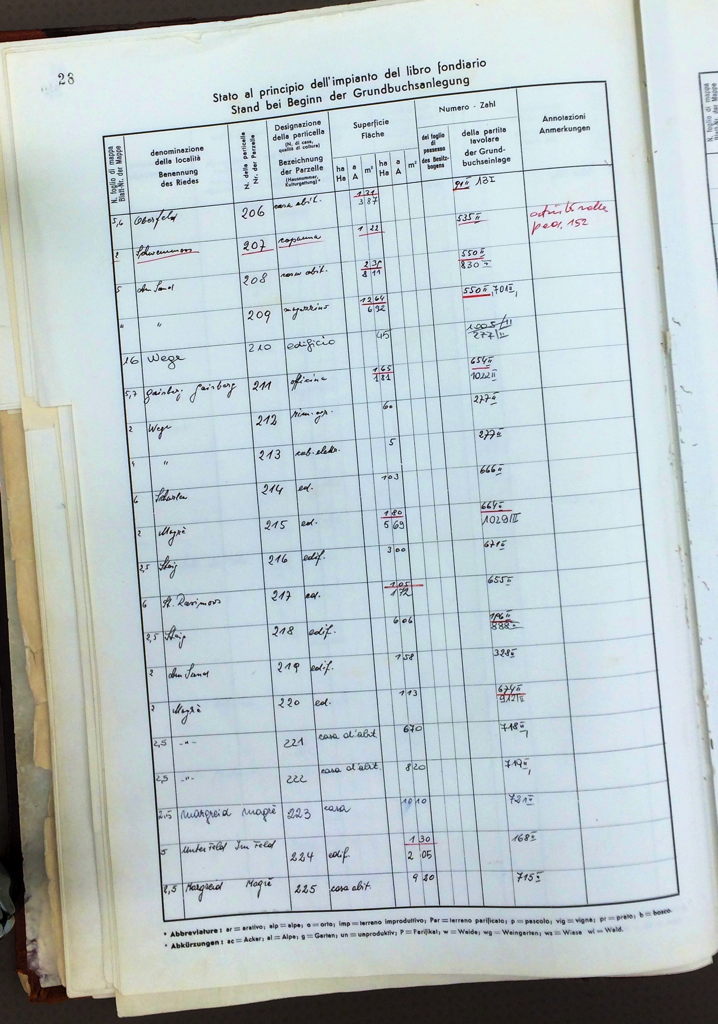 28
Stato al principio dell'impianto del libro fondiario
Stand bei Beginn der Grundbuchsanlegung
N. foglio di mappa
Blatt-Nr. der Mappe
denominazione
della località
Benennung
des Riedes
N. della particella
Nr. der Parzelle
Designazione
della particella
(N. di casa,
qualità di coltura)
Bezeichnung
der Parzelle
(Hausnummer,
Kulturgattung)
Superficie
Fläche
ha a m²
Ha A
ha a m²
Ha A
Numero - Zahl
del foglio di
possesso
des Besitz-
bogens
della partita
tavolare
der Grund-
buchseinlage
Annotazioni
Anmerkungen
5,6 Oberfeld 206 casa abit. 1 21 3 87 91 II 131
2 207 capanna 1 22 535 II
par. 152
5 Am Sand 208 casa abit. 8 11 550 II 830 II
" " 209 magazzino 12 64 6 32 550 II, 701 II,
16 Wege 210 edificio 45 1005/II 277/II
5,7 Gaisberg 211 officina 1 65 1 81 654 II 1022 II
2 Wege 212 60 277 II
" " 213 5 277 II
6 214 ed. 103 666 II
2 Magrè 215 ed. 1 80 5 69 664 II 1029/II
2,5 Steig 216 edif. 3 00 671 II
6 217 ed. 1 05 1 72 655 II
2,5 Steig 218 edif. 6 06 196 II 888 II
2 Am Sand 219 edif. 1 58 328 II
2 Magrè 220 ed. 1 13 674 II 912 II
2,5 -"- 221 casa d'abit 6 70 718 II,
2,5 -"- 222 casa d'abit. 8 20 719 II,
2,5 Margreid Magrè 223 casa 10 10 721 II
5 Unterfeld Im Feld 224 edif. 1 30 2 05 168 II
2,5 Margreid Magrè 225 casa abit. 9 20 715 II
* Abbreviature: ar = arativo; alp = alpe; o = orto; imp = terreno improduttivo; Par = terreno parificato; p = pascolo; vig = vigna; pr = prato; b = bosco.
* Abkürzungen: ac = Acker; al = Alpe; g = Garten; un = unproduktiv; P = Parifikat; w = Weide; wg = Weingarten; ws = Wiese wl = Wald.